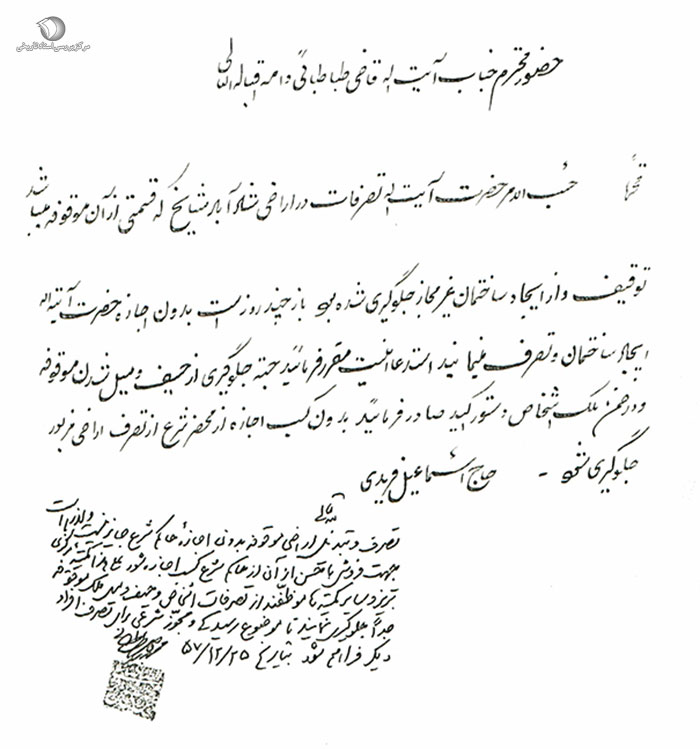 مرکز بررسی اسناد تاریخی
حضور محترم جناب آیت اله قاضی طباطبائی دامه اقباله العالی
محترما حسب الامر حضرت آیت اله تصرفات در اراضی شنب آباد مشایخ که قسمتی از آن موقوفه میباشد
توقیف و از ایجاد ساختمان غیر مجاز جلوگیری شده بود باز چند روز است بدون اجازه حضرت آیته اله
ایجاد ساختمان و تصرف مینمایند استدعا اینست مقرر فرمائید جهته جلوگیری از حیف و میل شدن موقوفه
و در ضمن ملک اشخاص دستور اکید صادر فرمائید بدون کسب اجازه از محضر شرع از تصرف اراضی مزبور
جلوگیری شود - حاج اسماعیل فریدی
بسمه تعالی
تصرف و تبدیل اراضی موقوفه بدون اجازه حاکم شرع جایز نیست و لازم است
جهت فروش یا از آن از حاکم شرع کسب اجازه شود علیهذا کمیته مرکزی
تبریز و سایر کمیته ها موظفند از تصرفات اشخاص و حیف و میل ملک موقوفه
جداً جلوگیری نمایند تا موضوع رسیدگی و مجوز شرعی برای تصرف افراد
دیگر فراهم شود بتاریخ ۵۷/۱۲/۲۵